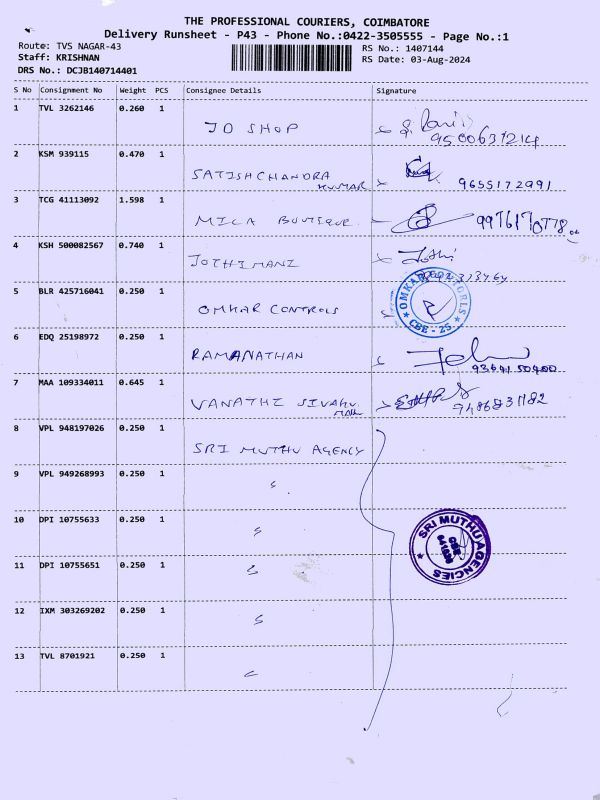 THE PROFESSIONAL COURIERS, COIMBATORE
Delivery Runsheet - P43 - Phone No.:0422-3505555 - Page No.:1
Route: TVS NAGAR-43
RS No.: 1407144
Staff: KRISHNAN
RS Date: 03-Aug-2024
DRS No.: DCJB140714401
S No Consignment No Weight PCS Consignee Details Signature
1 TVL 3262146 0.260 1 JD SHOP 9500631214
2 KSM 939115 0.470 1 SATISHCHANDRA KUMAR 9655172991
3 TCG 41113092 1.598 1 MILA BOUTIQUE
4 KSH 500082567 0.740 1 JOTHIMANI Jothi
5 BLR 425716041 0.250 1 OMKAR CONTROLS OMKAR CONTORLS CBE - 25
6 EDQ 25198972 0.250 1 RAMANATHAN
7 MAA 109334011 0.645 1 VANATHI
8 VPL 948197026 0.250 1 SRI MUTHU AGENCY
9 VPL 949268993 0.250 1
10 DPI 10755633 0.250 1 SRI MUTHU AGENCIES CBE
11 DPI 10755651 0.250 1
12 IXM 303269202 0.250 1
13 TVL 8701921 0.250 1